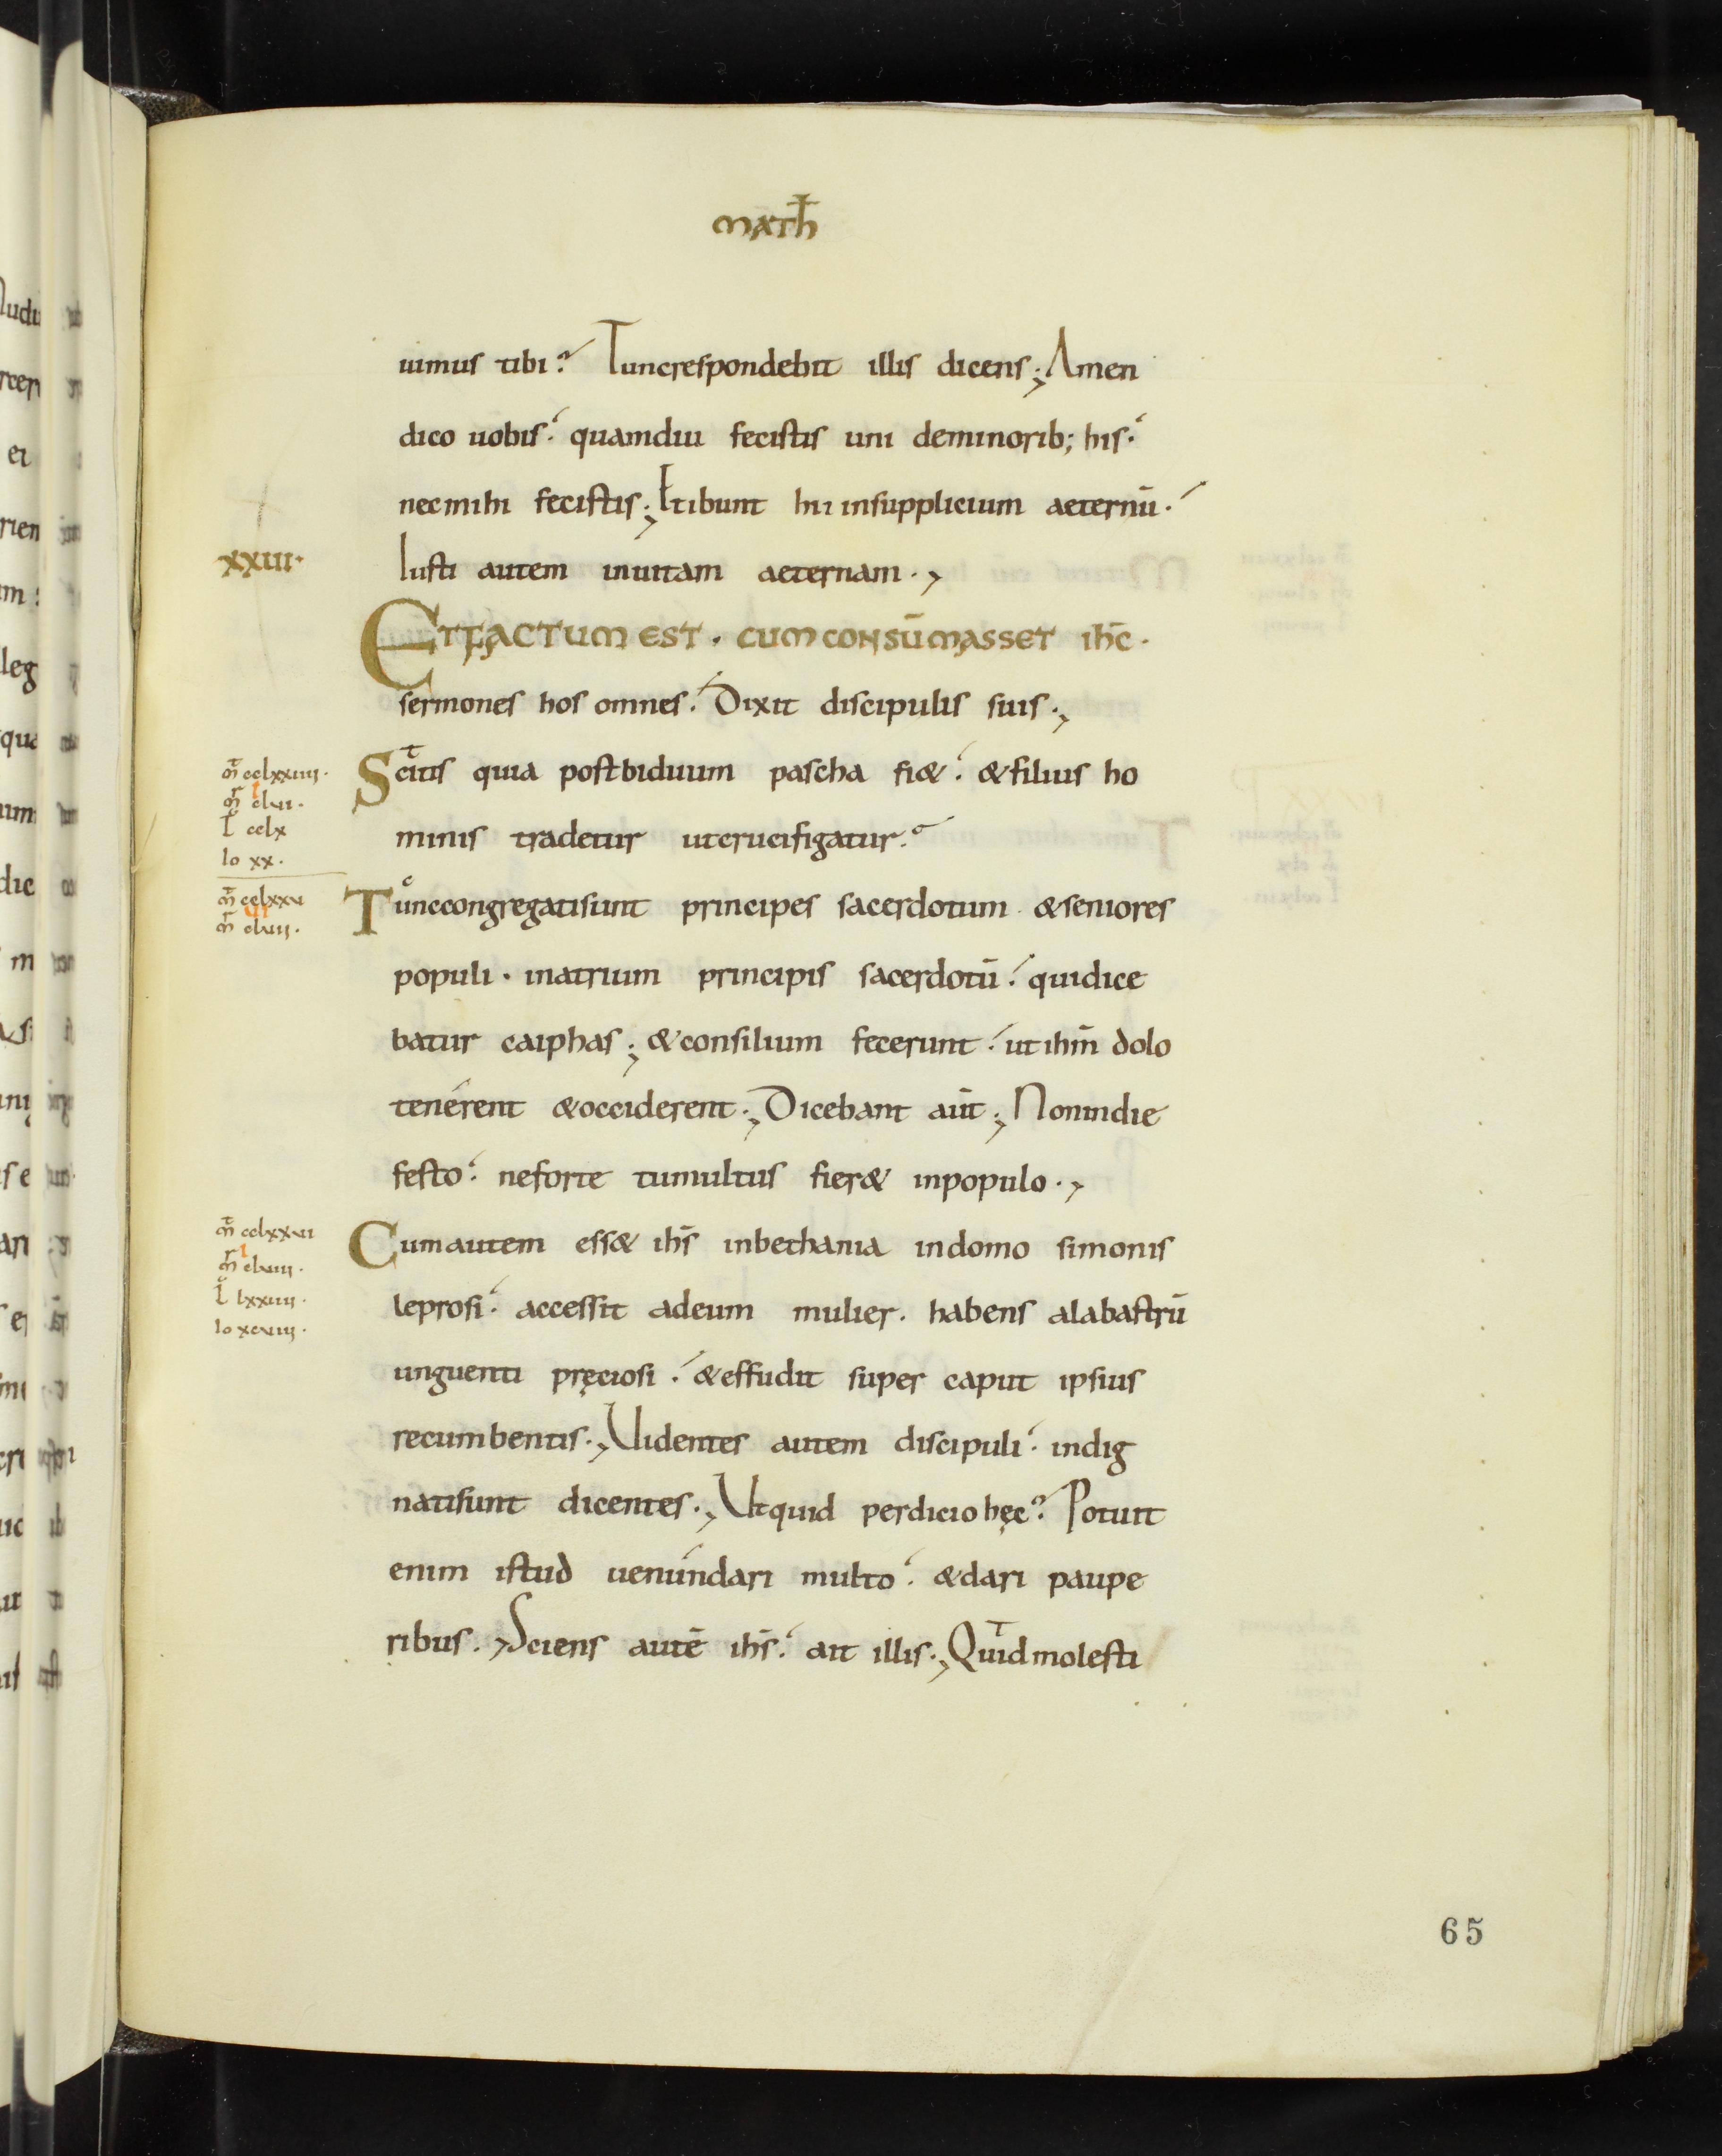 math̄
uimus tibi? Tuncrespondebit illis dicens; Amen
dico uobis. quamdiu fecistis uni deminorib; his.
necmihi fecistis; Etibunt hii insupplicium aeternū.
xxiii. Iusti autem inuitam aeternam.,
ETFACTUM EST. CUM CONSŪMASSET ihc̄.
sermones hos omnes. Dixit discipulis suis.,
Scitis quia postbiduum pascha fi&. &filius ho
minis tradetur utcrucifigatur.
Tunccongregatisunt principes sacerdotum &seniores
populi. inatrium principis sacerdotū. quidice
batur caiphas; &consilium fecerunt. ut ihm̄ dolo
tenérent &occiderent., Dicebant aūt; Nonindie
festo. neforte tumultus fier& inpopulo.,
Cumautem ess& ihs̄ inbethania indomo simonis
leprosi. accessit adeum mulier. habens alabastrū
unguenti pręciosi. &effudit super caput ipsius
recumbentis., Uidentes autem discipuli. indig
natisunt dicentes., Utquid perdicio hęc? Potuit
enim istud uenúndari multo. &dari paupe
ribus., Sciens autē ihs̄. ait illis., Quidmolesti
l cclx
io xx.
l lxxiiii.
io xcviii.
65